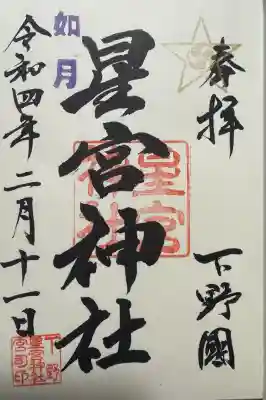 奉拝
下野國
星宮神社
星宮神社
如月
令和四年二月十一日
下野
星宮神社
宮司印